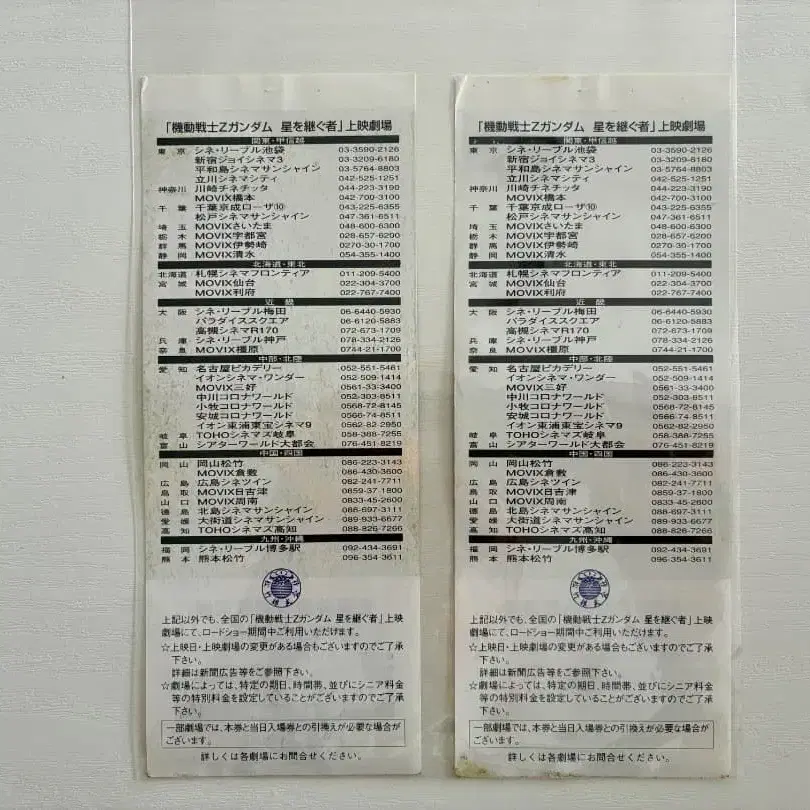 「機動戦士Zガンダム 星を継ぐ者」上映劇場
関東・甲信越
東京 シネ・リーブル池袋 03-3590-2126
新宿ジョイシネマ3 03-3209-6180
平和島シネマサンシャイン 03-5764-8803
立川シネマシティ 042-525-1251
神奈川 川崎チネチッタ 044-223-3190
MOVIX橋本 042-700-3100
千葉 千葉京成ローザ⑩ 043-225-6355
松戸シネマサンシャイン 047-361-6511
埼玉 MOVIXさいたま 048-600-6300
栃木 MOVIX宇都宮 028-657-6200
群馬 MOVIX伊勢崎 0270-30-1700
静岡 MOVIX清水 054-355-1400
北海道・東北
北海道 札幌シネマフロンティア 011-209-5400
宮城 MOVIX仙台 022-304-3700
MOVIX利府 022-767-7400
近畿
大阪 シネ・リーブル梅田 06-6440-5930
パラダイススクエア 06-6120-5883
高槻シネマR170 072-673-1709
兵庫 シネ・リーブル神戸 078-334-2126
奈良 MOVIX橿原 0744-21-1700
中部・北陸
愛知 名古屋ピカデリー 052-551-5461
イオンシネマ・ワンダー 052-509-1414
MOVIX三好 0561-33-3400
中川コロナワールド 052-303-8511
小牧コロナワールド 0568-72-8145
安城コロナワールド 0566-74-8511
イオン東浦東宝シネマ9 0562-82-2950
岐阜 TOHOシネマズ岐阜 058-388-7255
富山 シアターワールド大都会 076-451-8219
中国・四国
岡山 岡山松竹 086-223-3143
MOVIX倉敷 086-430-3600
広島 広島シネツイン 082-241-7711
鳥取 MOVIX日吉津 0859-37-1800
山口 MOVIX周南 0833-45-2600
徳島 北島シネマサンシャイン 088-697-3111
愛媛 大街道シネマサンシャイン 089-933-6677
高知 TOHOシネマズ高知 088-826-7266
九州・沖縄
福岡 シネ・リーブル博多駅 092-434-3691
熊本 熊本松竹 096-354-3611
上記以外でも、全国の「機動戦士Zガンダム 星を継ぐ者」上映
劇場にて、ロードショー期間中ご利用いただけます。
☆上映日・上映劇場の変更がある場合もございますのでご了承
下さい。
詳細は新聞広告等をご参照下さい。
☆劇場によっては、特定の期日、時間帯、並びにシニア料金
等の特別料金を設定していることがございますのでご了承
下さい。
一部劇場では、本券と当日入場券との引換えが必要な場合が
ございます。
詳しくは各劇場にお問合せください。
「機動戦士Zガンダム 星を継ぐ者」上映劇場
関東・甲信越
東京 シネ・リーブル池袋 03-3590-2126
新宿ジョイシネマ3 03-3209-6180
平和島シネマサンシャイン 03-5764-8803
立川シネマシティ 042-525-1251
神奈川 川崎チネチッタ 044-223-3190
MOVIX橋本 042-700-3100
千葉 千葉京成ローザ⑩ 043-225-6355
松戸シネマサンシャイン 047-361-6511
埼玉 MOVIXさいたま 048-600-6300
栃木 MOVIX宇都宮 028-657-6200
群馬 MOVIX伊勢崎 0270-30-1700
静岡 MOVIX清水 054-355-1400
北海道・東北
北海道 札幌シネマフロンティア 011-209-5400
宮城 MOVIX仙台 022-304-3700
MOVIX利府 022-767-7400
近畿
大阪 シネ・リーブル梅田 06-6440-5930
パラダイススクエア 06-6120-5883
高槻シネマR170 072-673-1709
兵庫 シネ・リーブル神戸 078-334-2126
奈良 MOVIX橿原 0744-21-1700
中部・北陸
愛知 名古屋ピカデリー 052-551-5461
イオンシネマ・ワンダー 052-509-1414
MOVIX三好 0561-33-3400
中川コロナワールド 052-303-8511
小牧コロナワールド 0568-72-8145
安城コロナワールド 0566-74-8511
イオン東浦東宝シネマ9 0562-82-2950
岐阜 TOHOシネマズ岐阜 058-388-7255
富山 シアターワールド大都会 076-451-8219
中国・四国
岡山 岡山松竹 086-223-3143
MOVIX倉敷 086-430-3600
広島 広島シネツイン 082-241-7711
鳥取 MOVIX日吉津 0859-37-1800
山口 MOVIX周南 0833-45-2600
徳島 北島シネマサンシャイン 088-697-3111
愛媛 大街道シネマサンシャイン 089-933-6677
高知 TOHOシネマズ高知 088-826-7266
九州・沖縄
福岡 シネ・リーブル博多駅 092-434-3691
熊本 熊本松竹 096-354-3611
上記以外でも、全国の「機動戦士Zガンダム 星を継ぐ者」上映
劇場にて、ロードショー期間中ご利用いただけます。
☆上映日・上映劇場の変更がある場合もございますのでご了承
下さい。
詳細は新聞広告等をご参照下さい。
☆劇場によっては、特定の期日、時間帯、並びにシニア料金
等の特別料金を設定していることがございますのでご了承
下さい。
一部劇場では、本券と当日入場券との引換えが必要な場合が
ございます。
詳しくは各劇場にお問合せください。